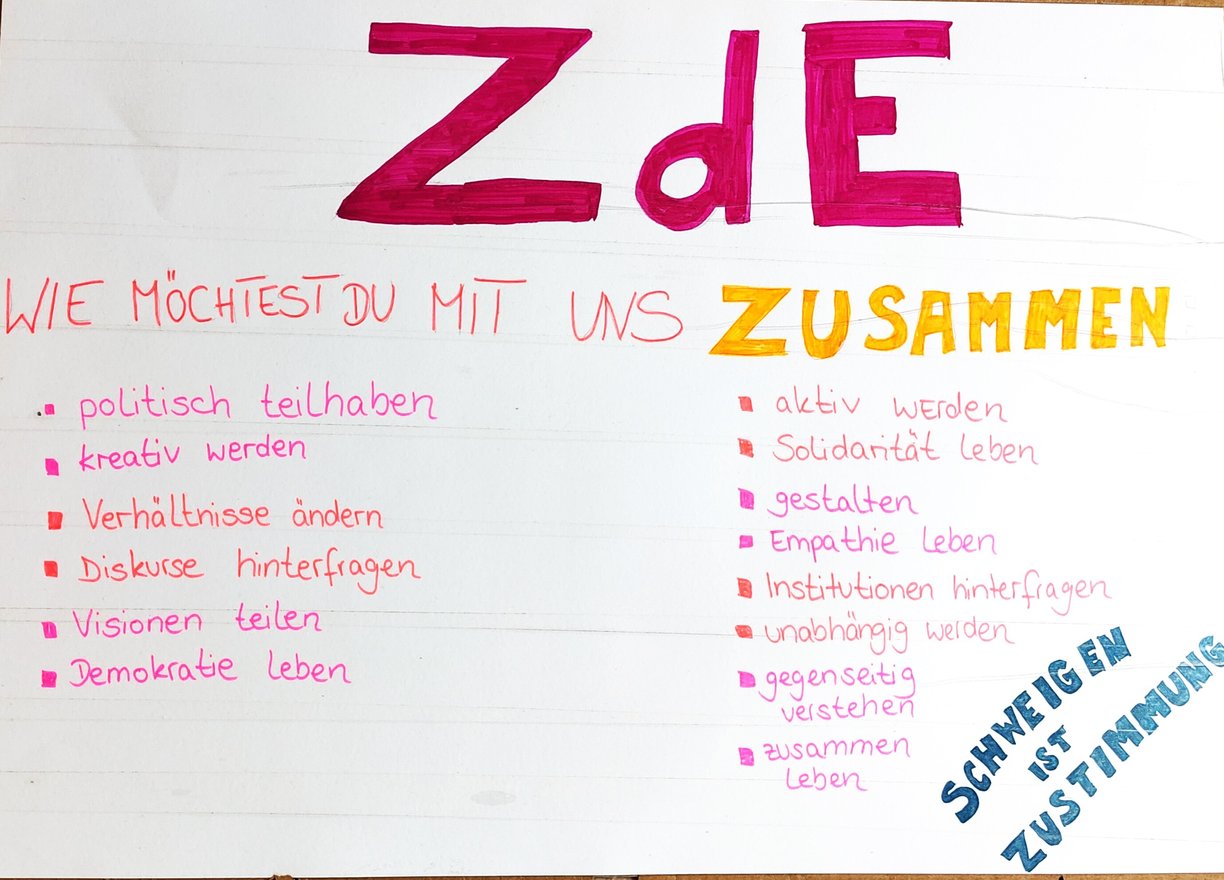 ZdE
WIE MÖCHTEST DU MIT UNS ZUSAMMEN
politisch teilhaben
kreativ werden
Verhältnisse ändern
Diskurse hinterfragen
Visionen teilen
Demokratie leben
aktiv wErden
Solidarität leben
gestalten
Empathie leben
Institutionen hinterfragen
unabhängig werden
gegenseitig
verstehen
zusammen
leben
SCHWEIGEN
IST
ZUSTIMMUNG